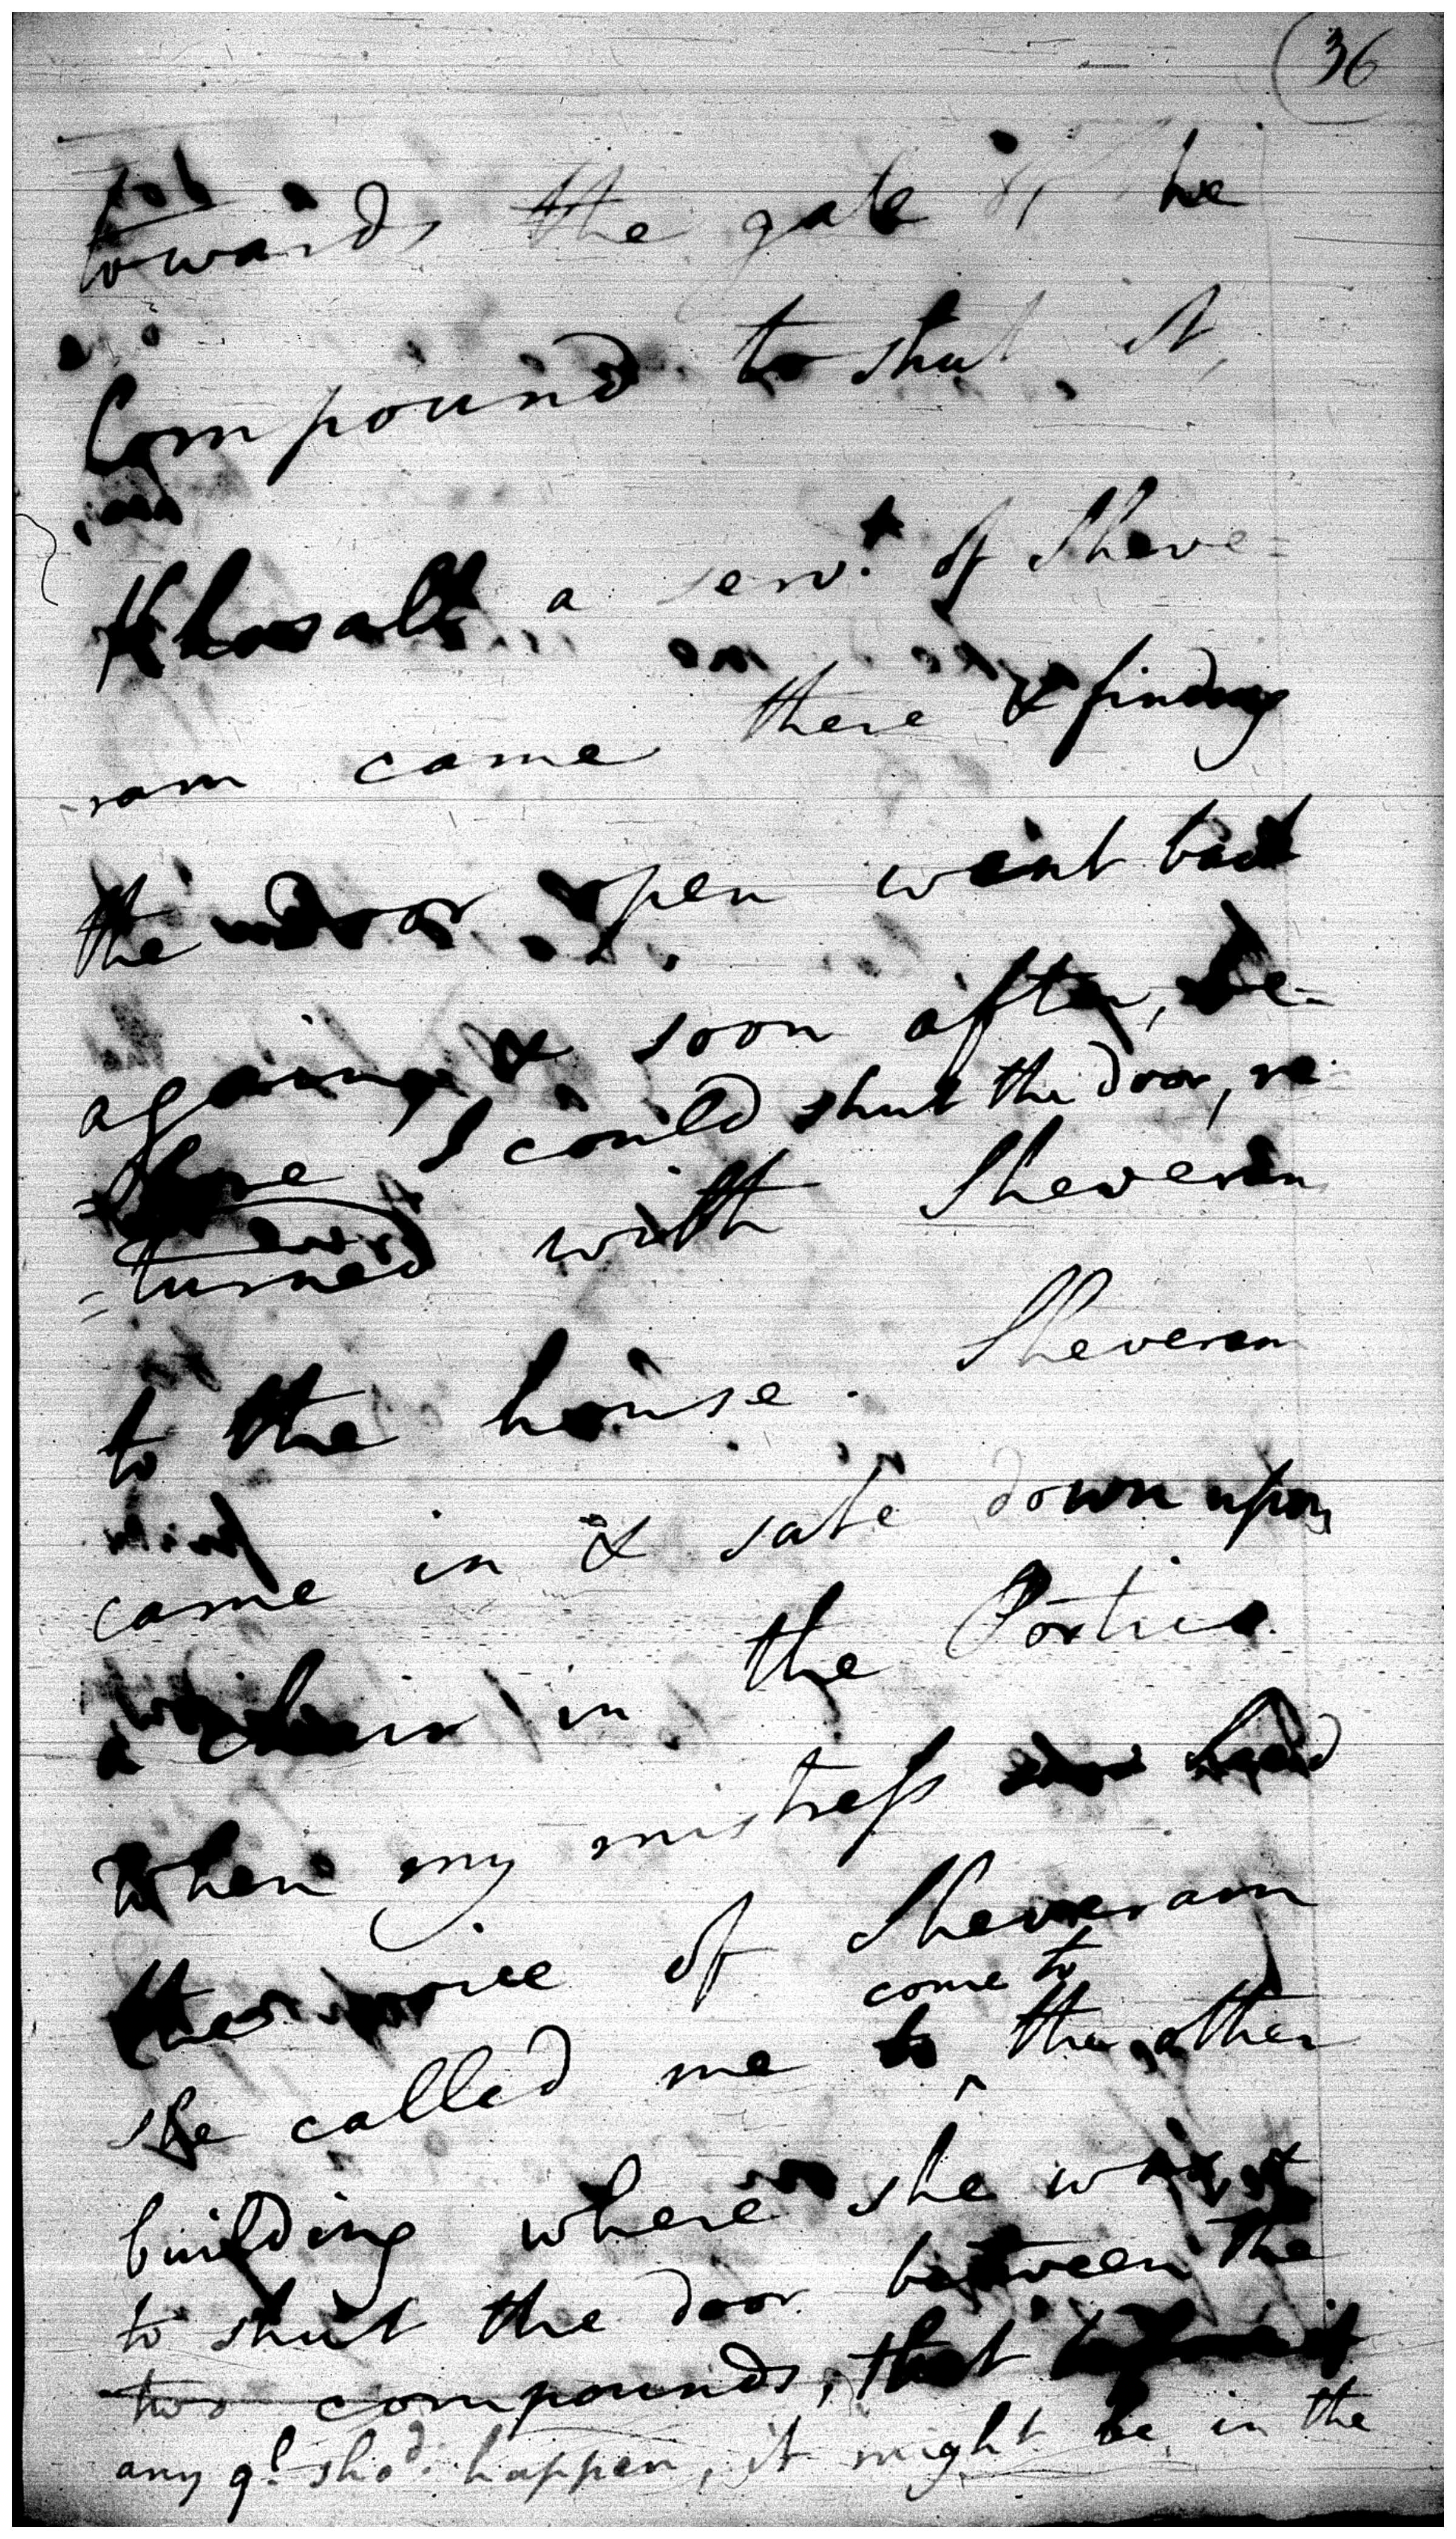 36
towards the gate of the
Compound to shut it,
Khosall a serv.t of Sheve=
ram came there & finding
the door open went back
again & soon after, be=
=fore I could shut the door, re=
=turned with Sheveram
to the house. Sheveram
came in & sate down upon
a chair in the Portico
when my mistress heard
the voice of Sheveram
come to
she called me to the other
building where she was,
to shut the door between the
two compounds, that if
any ql. shod. happen, it might be in the